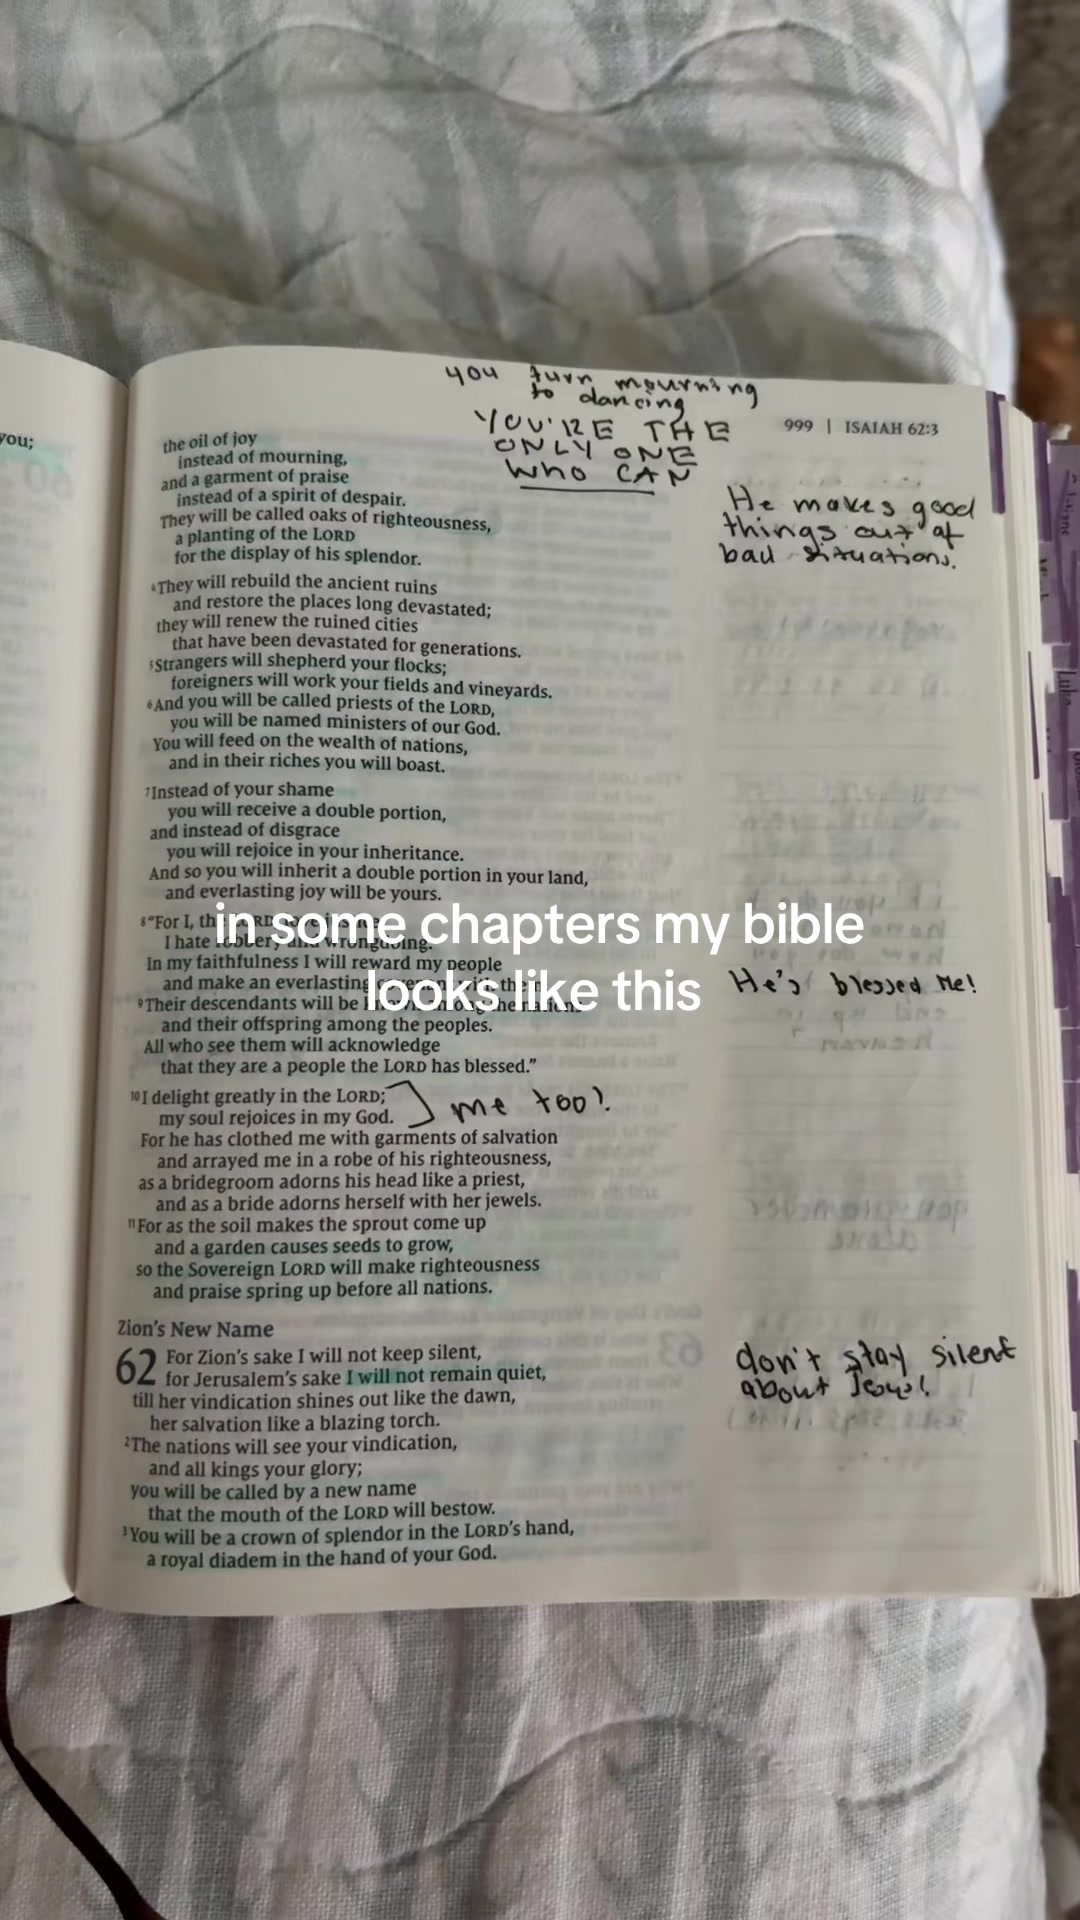 you turn mourning
to dancing
YOU'RE THE
ONLY ONE
WHO CAN
999 | ISAIAH 62:3
you;
the oil of joy
instead of mourning,
and a garment of praise
instead of a spirit of despair.
They will be called oaks of righteousness,
a planting of the LORD
for the display of his splendor.
He makes good
things out of
bad situations.
4 They will rebuild the ancient ruins
and restore the places long devastated;
they will renew the ruined cities
that have been devastated for generations.
5 Strangers will shepherd your flocks;
foreigners will work your fields and vineyards.
6 And you will be called priests of the LORD,
you will be named ministers of our God.
You will feed on the wealth of nations,
and in their riches you will boast.
7 Instead of your shame
you will receive a double portion,
and instead of disgrace
you will rejoice in your inheritance.
And so you will inherit a double portion in your land,
and everlasting joy will be yours.
in some chapters my bible
looks like this
8 "For I, the LORD, love justice;
I hate robbery and wrongdoing.
In my faithfulness I will reward my people
and make an everlasting covenant with them.
9 Their descendants will be known among the nations
and their offspring among the peoples.
All who see them will acknowledge
that they are a people the LORD has blessed."
He's blessed me!
10 I delight greatly in the LORD;
my soul rejoices in my God.
me too!
For he has clothed me with garments of salvation
and arrayed me in a robe of his righteousness,
as a bridegroom adorns his head like a priest,
and as a bride adorns herself with her jewels.
11 For as the soil makes the sprout come up
and a garden causes seeds to grow,
so the Sovereign LORD will make righteousness
and praise spring up before all nations.
Zion's New Name
62 For Zion's sake I will not keep silent,
for Jerusalem's sake I will not remain quiet,
till her vindication shines out like the dawn,
her salvation like a blazing torch.
don't stay silent
about Jesus!
2 The nations will see your vindication,
and all kings your glory;
you will be called by a new name
that the mouth of the LORD will bestow.
3 You will be a crown of splendor in the LORD's hand,
a royal diadem in the hand of your God.
Luke